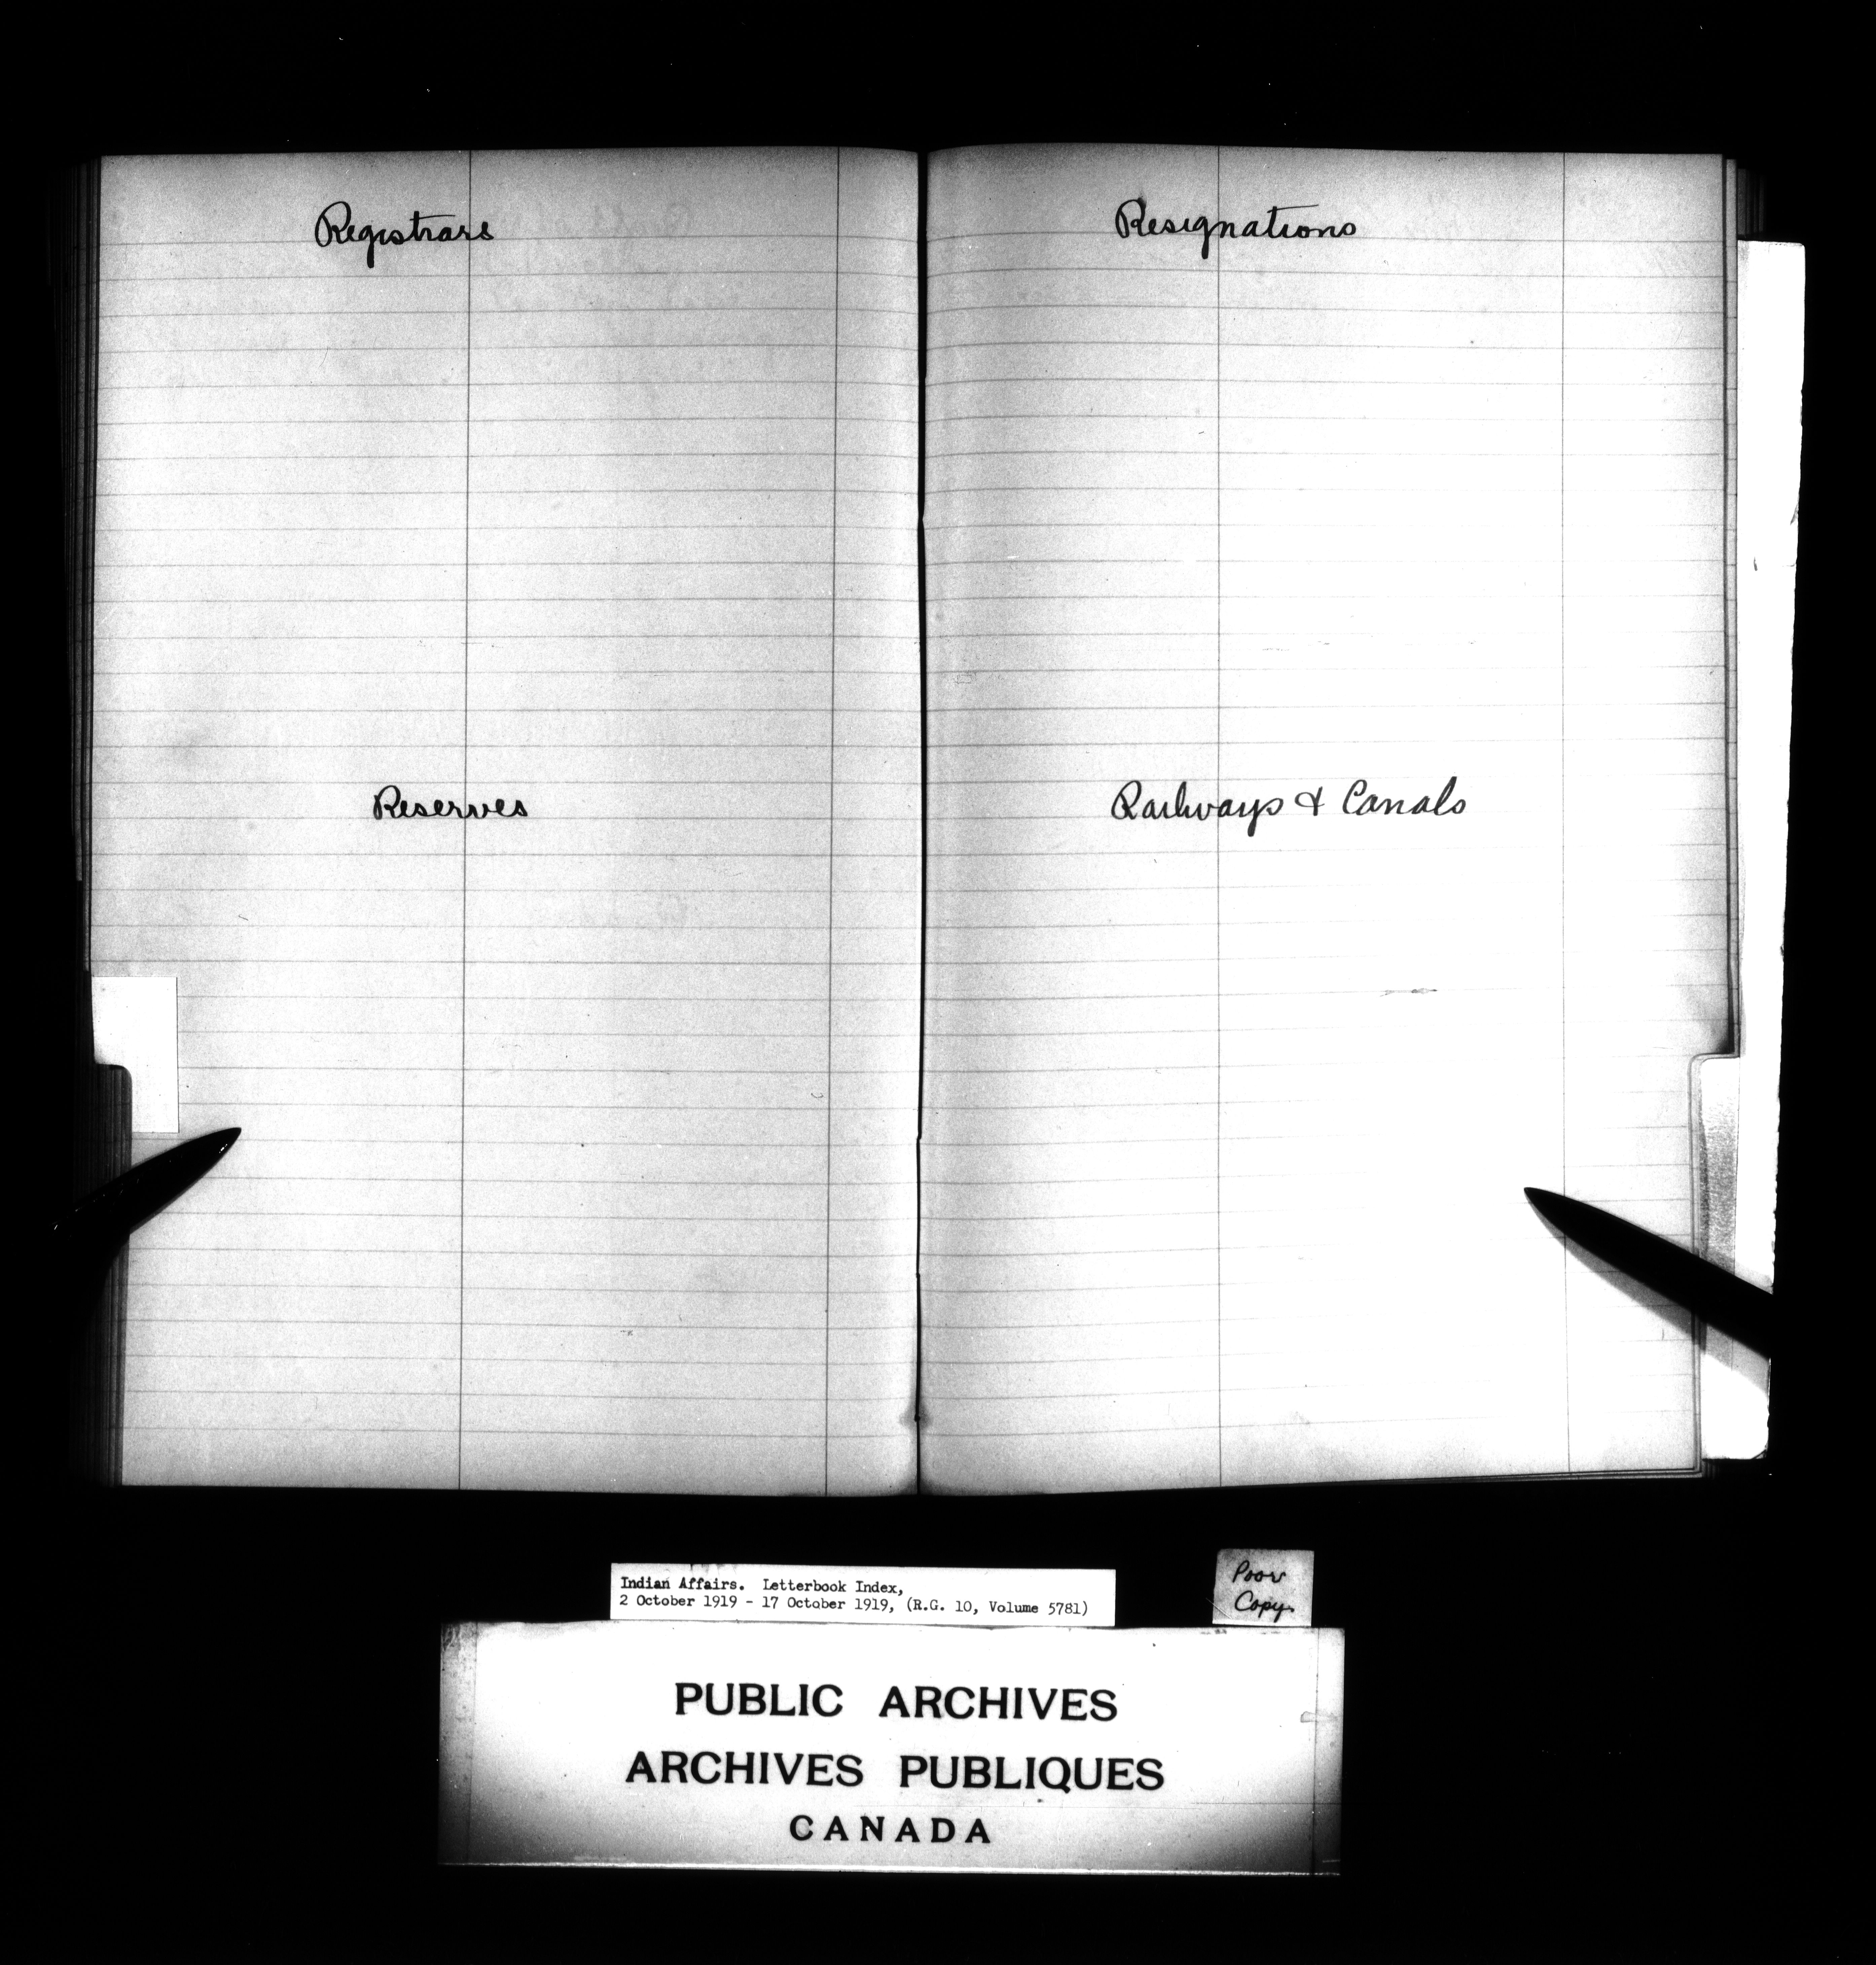 Registrars
Reserves
Resignations
Railways & Canals
Indian Affairs. Letterbook Index,
2 October 1919 - 17 October 1919, (R.G. 10, Volume 5781)
Poor
Copy
PUBLIC ARCHIVES
ARCHIVES PUBLIQUES
CANADA